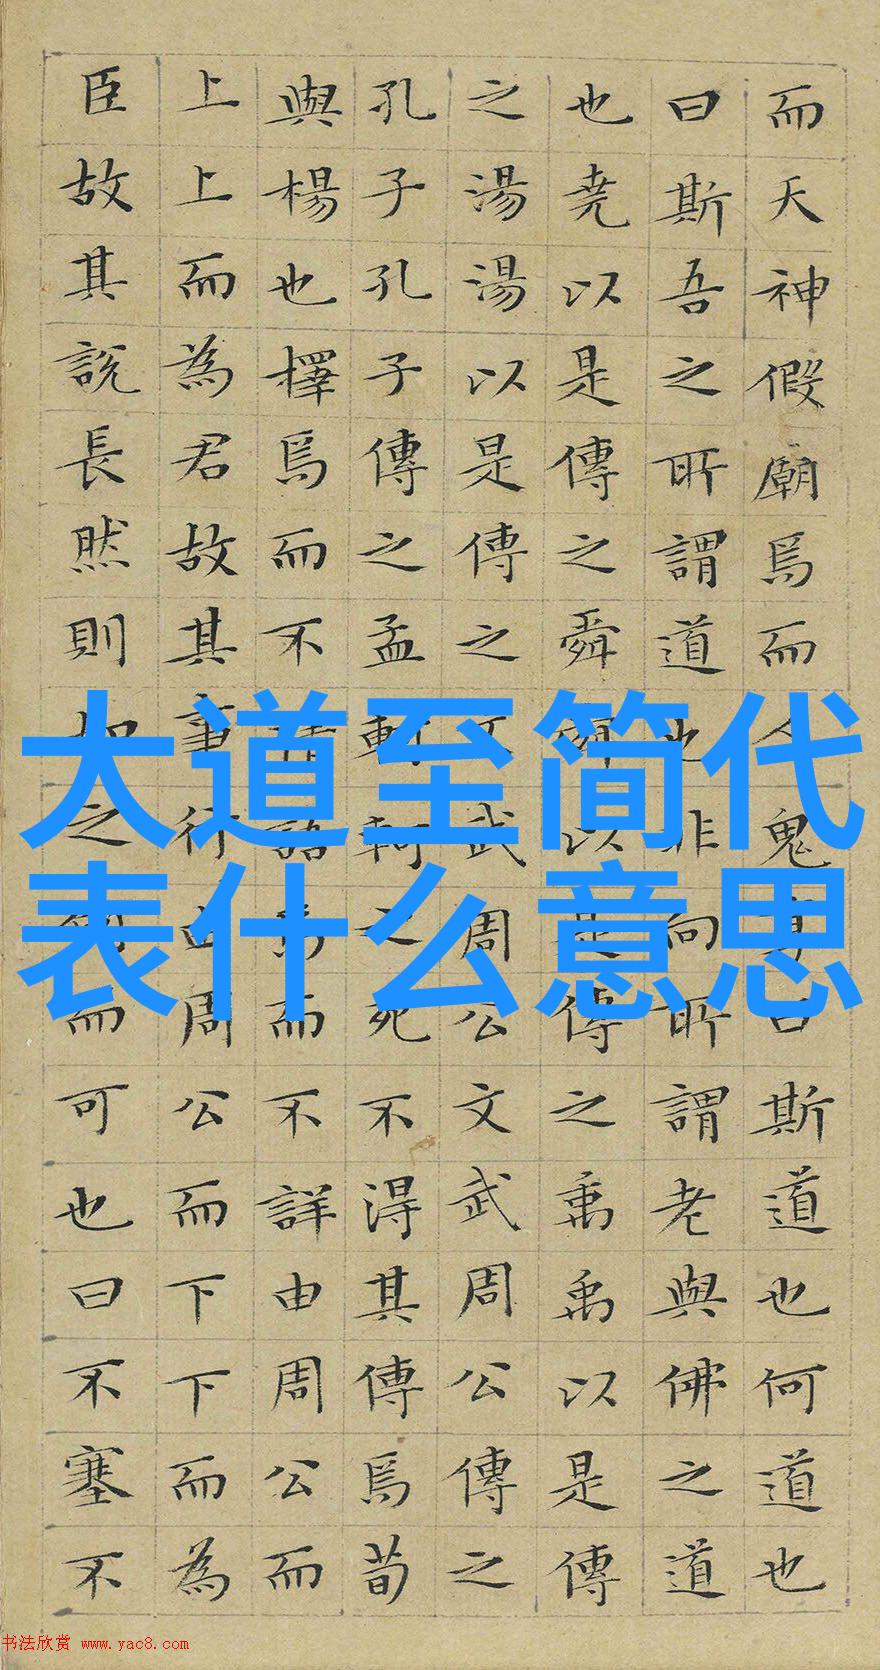 而天神假廟焉而人鬼享曰斯道也何道也
曰斯吾之所謂道也非向所謂老與佛之道
也堯以是傳之舜舜以是傳之禹禹以是傳
之湯湯以是傳之文武周公文武周公傳之
孔子孔子傳之孟軻軻之死不得其傳焉荀
與楊也擇焉而不精語焉而不詳由周公而
上上而為君故其事行由周公而下下而為
臣故其說長然則如之何而可也曰不塞不
大道至简代
表什么意思
书法欣赏 www.yac8.com